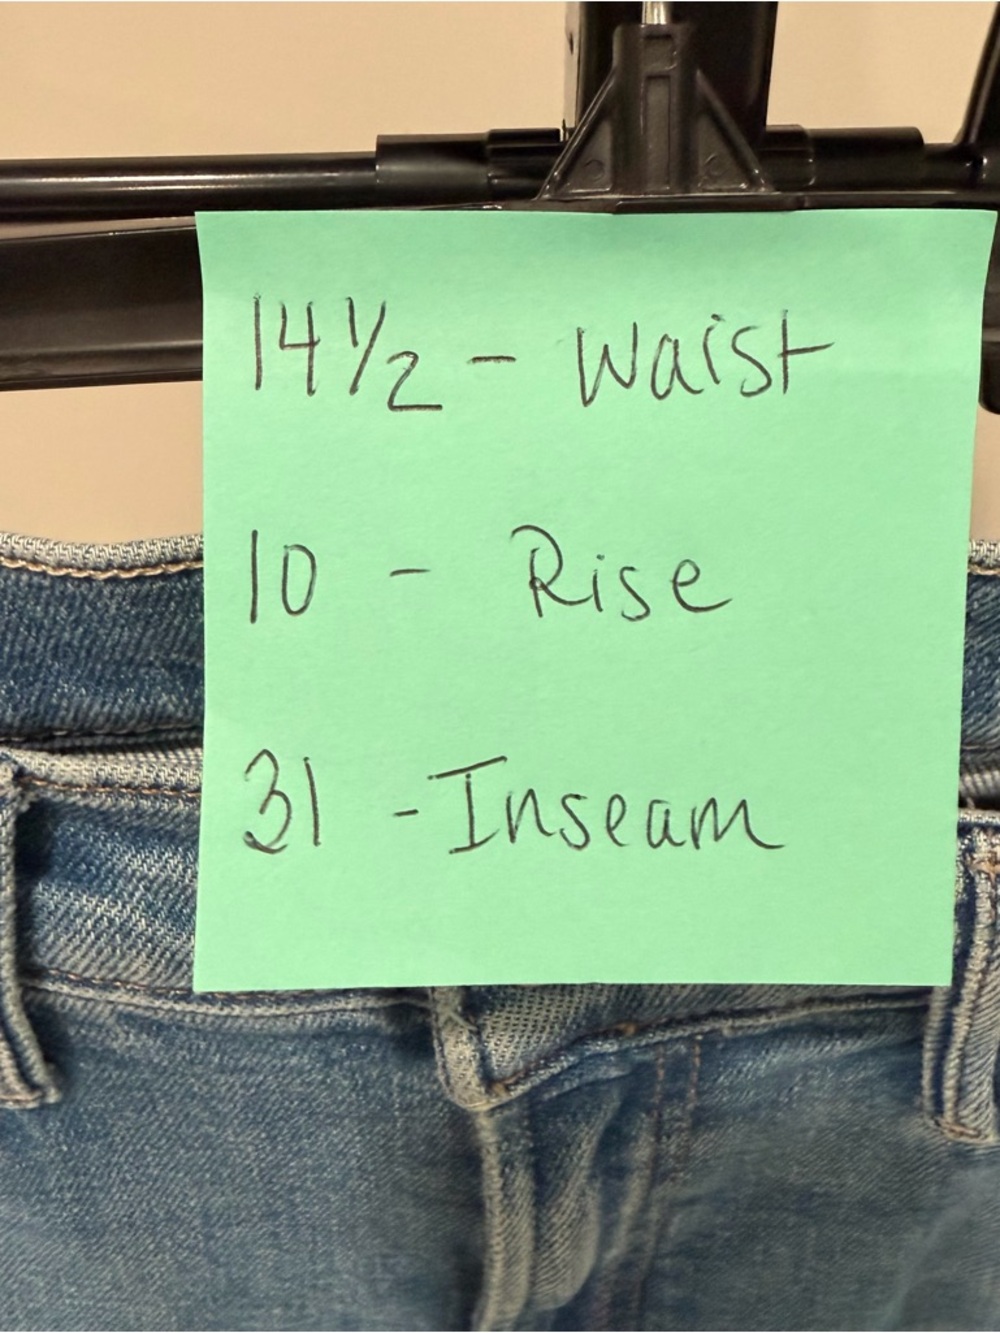 14 ½ - Waist
10 - Rise
31 - Inseam